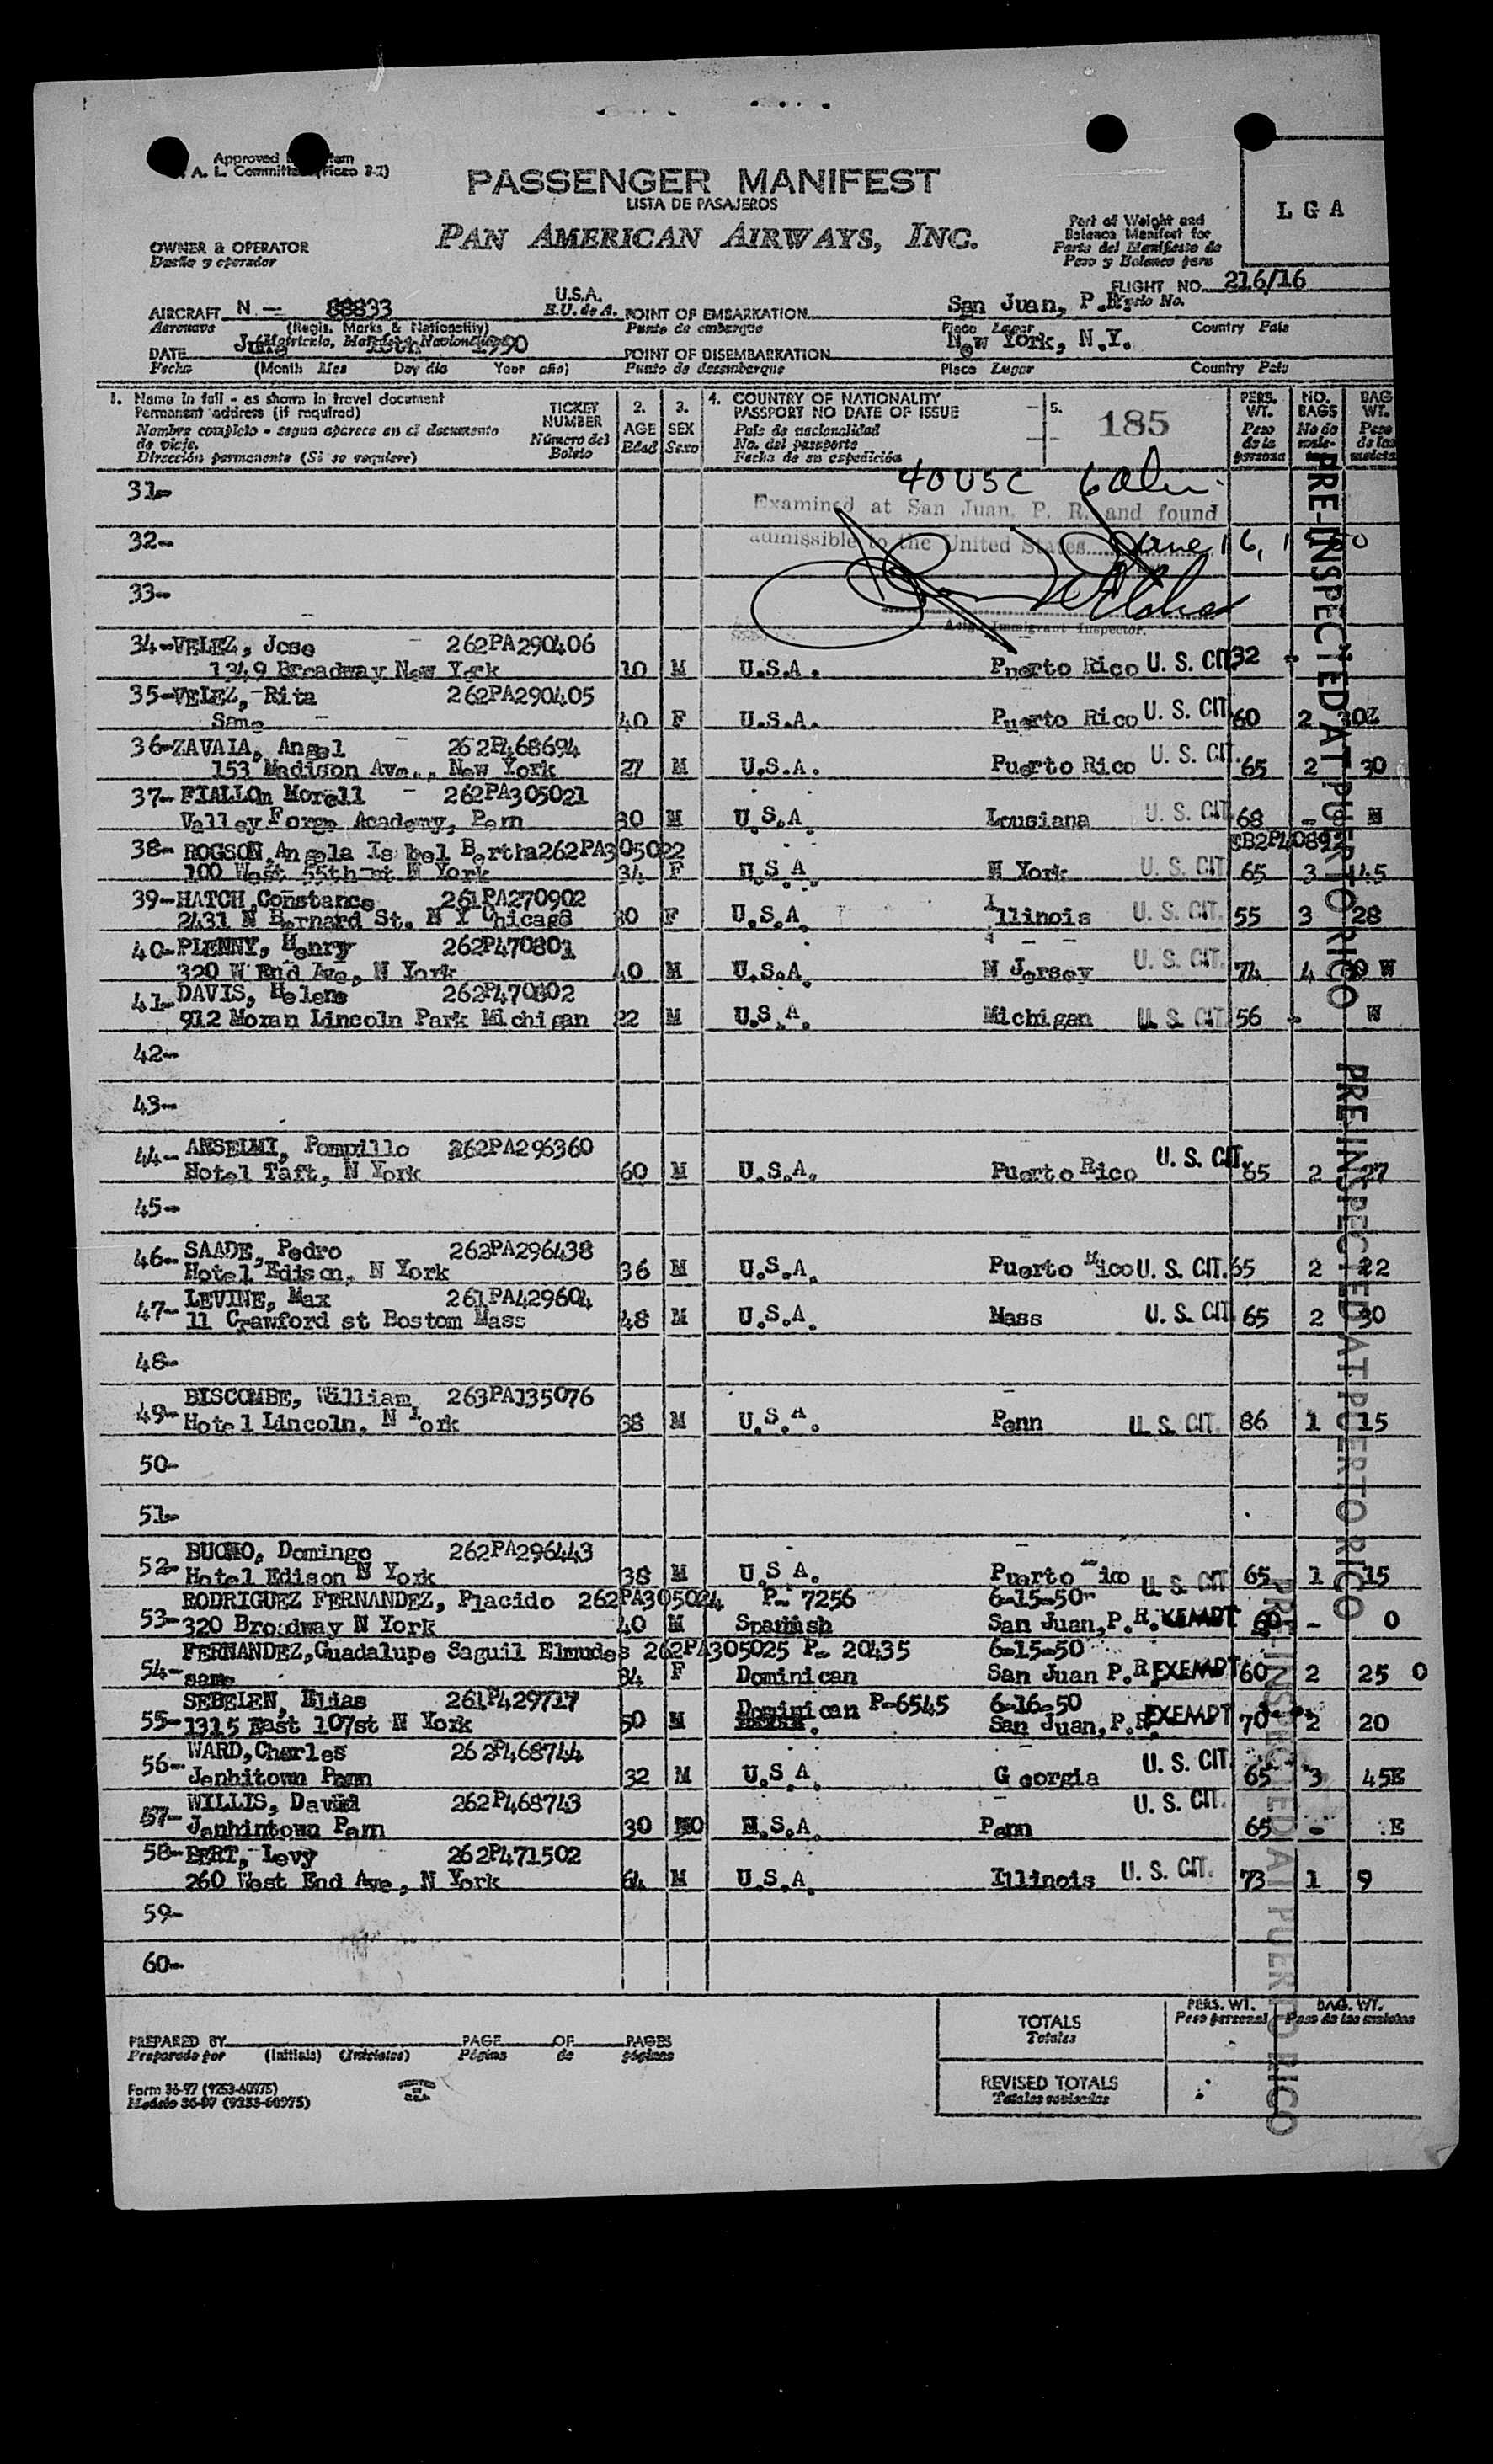 Approved
A. L. Committee (Ficao 3-2)
PASSENGER MANIFEST
LISTA DE PASAJEROS
PAN AMERICAN AIRWAYS, INC.
OWNER & OPERATOR
Dueño y operador
Part of Weight and
Balance Manifest for
Parte del Manifiesto de
Peso y Balance para
L G A
FLIGHT NO. 216/16
Vuelo No.
AIRCRAFT N - 88833 U.S.A.
Aeronave (Regis. Marks & Nationality) E.U. de A.
(Matricula, Marcas y Nacionalidad)
POINT OF EMBARKATION San Juan, P.R.
Punto de embarque Place Lugar Country Pais
DATE June 16th 1950
Fecha (Month Mes Day dia Year año)
POINT OF DISEMBARKATION New York, N.Y.
Punto de desembarque Place Lugar Country Pais
1. Name in full - as shown in travel document
Permanent address (if required)
Nombre completo - segun aparece en el documento
de viaje.
Dirección permanente (Si se requiere)
TICKET
NUMBER
Número del
Boleto
2.
AGE
Edad
3.
SEX
Sexo
4. COUNTRY OF NATIONALITY
PASSPORT NO DATE OF ISSUE
Pais de nacionalidad
No. del pasaporte
Fecha de su expedición
5.
185
PERS.
WT.
Peso
de la
persona
NO.
BAGS
No de
male-
tas
BAG
WT.
Peso
de las
maletas
31-
40 USC 6 alien
Examined at San Juan, P. R. and found
32-
admissible to the United States June 16, 1950
33-
Actg. Immigrant Inspector.
34-VELEZ, Jose 262PA290406
1349 Broadway New York 10 M U.S.A. Puerto Rico U. S. CIT. 32 -
35-VELEZ, Rita 262PA290405
Same 40 F U.S.A. Puerto Rico U. S. CIT. 60 2 30Z
36-ZAVAIA, Angel 262P468694
153 Madison Ave., New York 27 M U.S.A. Puerto Rico U. S. CIT. 65 2 30
37- FIALLOn Morell 262PA305021
Valley Forge Academy, Penn 30 M U.S.A. Lousiana U. S. CIT. 68 - N
38- ROGSON, Angela Isabel Bertha 262PA305022
100 West 55th st N York 34 F U.S.A. N York U. S. CIT 65 3 45
39-HATCH, Constance 261PA270902
2431 N Bernard St. N Y Chicago 30 F U.S.A. Illinois U. S. CIT. 55 3 28
40-PLENNY, Henry 262P470801
320 W End Ave, N York 40 M U.S.A. N Jersey U. S. CIT. 74 4 W
41-DAVIS, Helens 262P470802
912 Moran Lincoln Park Michigan 22 M U.S.A. Michigan U. S. CIT 56 - W
42-
43-
44- ANSELMI, Pompillo 262PA296360
Hotel Taft, N York 60 M U.S.A. Puerto Rico U. S. CIT. 65 2 27
45-
46- SAADE, Pedro 262PA296438
Hotel Edison, N York 36 M U.S.A. Puerto Rico U. S. CIT. 65 2 22
47- LEVINE, Max 261PA429604
11 Crawford st Bostom Mass 48 M U.S.A. Mass U. S. CIT. 65 2 30
48-
49- BISCOMBE, William 263PA135076
Hotel Lincoln, N York 38 M U.S.A. Penn U. S. CIT. 86 1 15
50-
51-
52- BUONO, Domingo 262PA296443
Hotel Edison N York 38 M U.S.A. Puerto Rico U. S. CIT 65 1 15
RODRIGUEZ FERNANDEZ, Placido 262PA305024 P- 7256 6-15-50
53-320 Broadway N York 40 M Spanish San Juan, P.R. EXEMPT 60 - 0
FERNANDEZ, Guadalupe Saguil Elmudes 262PA305025 P- 20435 6-15-50
54- same 34 F Dominican San Juan P.R. EXEMPT 60 2 25 0
SEBELEN, Elias 261P429717 Dominican P-6545 6-16-50
55-1315 East 107st N York 50 M San Juan, P.R. EXEMPT 70 2 20
56- WARD, Charles 262P468744
Jenhitown Penn 32 M U.S.A. Georgia U. S. CIT. 65 3 45E
57- WILLIS, David 262P468743
Jenhintown Penn 30 U.S.A. Penn U. S. CIT. 65 - E
58-BERT, Levy 262P471502
260 West End Ave, N York 64 M U.S.A. Illinois U. S. CIT. 73 1 9
59-
60-
PRE-INSPECTED AT PUERTO RICO
PRE-INSPECTED AT PUERTO RICO
PRE-INSPECTED AT PUERTO RICO
PREPARED BY PAGE OF PAGES
Preparado por (Initials) (Iniciales) Página de páginas
Form 36-97 (9253-60975)
Modelo 36-97 (9253-60975)
PRINTED IN U.S.A.
TOTALS
Totales
PERS. WT.
Peso personal
BAG. WT.
Peso de las maletas
REVISED TOTALS
Totales revisadas